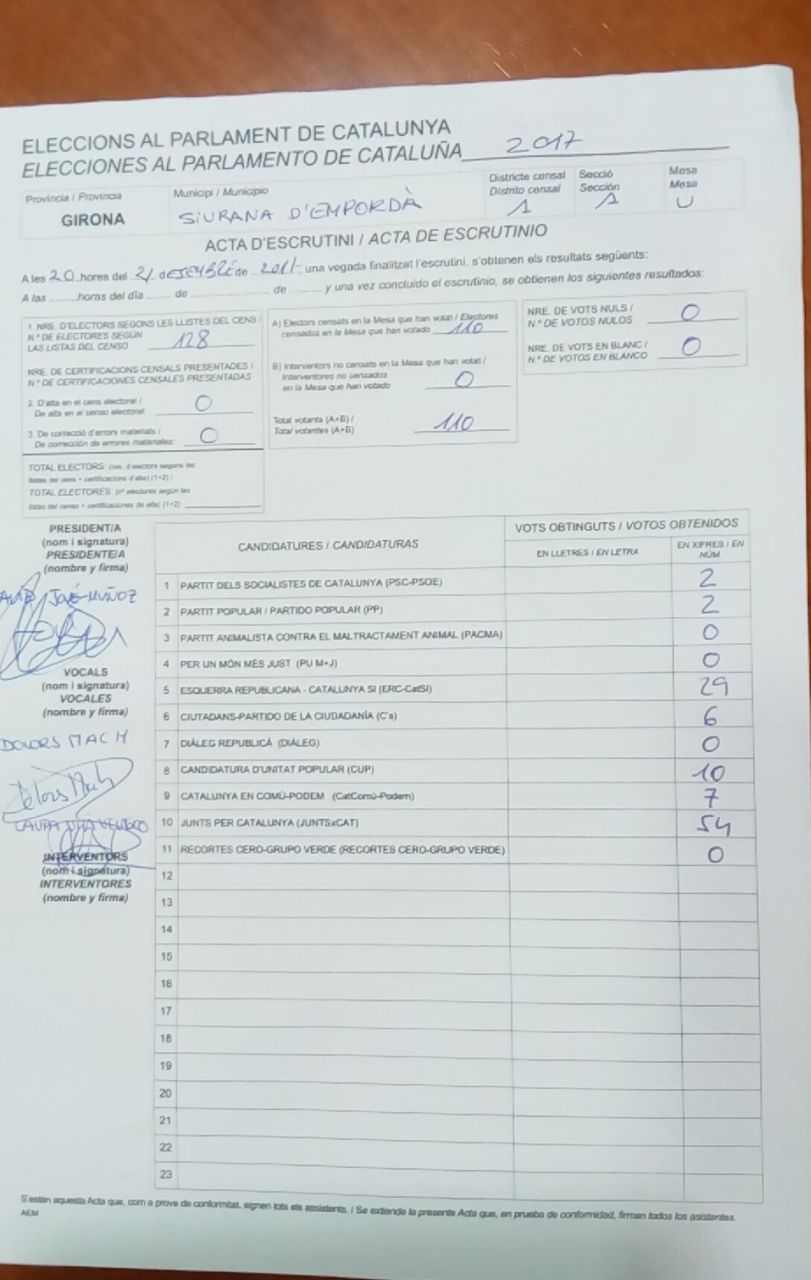 ELECCIONS AL PARLAMENT DE CATALUNYA
ELECCIONES AL PARLAMENTO DE CATALUÑA 2017
Provincia / Provincia Municipi / Municipio Districte censal Secció Mesa
Distrito censal Sección Mesa
GIRONA SIURANA D'EMPORDÀ 1 1 U
ACTA D'ESCRUTINI / ACTA DE ESCRUTINIO
A les 20 hores del 21 de de 2017, una vegada finalitzat l'escrutini, s'obtenen els resultats següents:
A las ........ horas del día ....... de ........................ de ......... y una vez concluido el escrutinio, se obtienen los siguientes resultados:
1. NRE. D'ELECTORS SEGONS LES LLISTES DEL CENS /
N.º DE ELECTORES SEGÚN
LAS LISTAS DEL CENSO 128
NRE. DE CERTIFICACIONS CENSALS PRESENTADES /
N.º DE CERTIFICACIONES CENSALES PRESENTADAS
2. D'alta en el cens electoral /
De alta en el censo electoral: 0
3. De correcció d'errors materials /
De corrección de errores materiales: 0
TOTAL ELECTORS: (nre. d'electors segons les
llistes del cens + certificacions d'alta) (1+2) /
TOTAL ELECTORES: (nº electores según las
listas del censo + certificaciones de alta) (1+2)
A) Electors censats en la Mesa que han votat / Electores
censados en la Mesa que han votado 110
B) Interventors no censats en la Mesa que han votat /
Interventores no censados
en la Mesa que han votado 0
Total votants (A+B) /
Total votantes (A+B) 110
NRE. DE VOTS NULS /
N.º DE VOTOS NULOS 0
NRE. DE VOTS EN BLANC /
N.º DE VOTOS EN BLANCO 0
PRESIDENT/A
(nom i signatura)
PRESIDENTE/A
(nombre y firma)
JOSÉ MUÑOZ
VOCALS
(nom i signatura)
VOCALES
(nombre y firma)
DOLORS MACH
Dolors Mach
LAURA
INTERVENTORS
(nom i signatura)
INTERVENTORES
(nombre y firma)
CANDIDATURES / CANDIDATURAS VOTS OBTINGUTS / VOTOS OBTENIDOS
EN LLETRES / EN LETRA EN XIFRES / EN NÚM.
1 PARTIT DELS SOCIALISTES DE CATALUNYA (PSC-PSOE) 2
2 PARTIT POPULAR / PARTIDO POPULAR (PP) 2
3 PARTIT ANIMALISTA CONTRA EL MALTRACTAMENT ANIMAL (PACMA) 0
4 PER UN MÓN MÉS JUST (PU M+J) 0
5 ESQUERRA REPUBLICANA - CATALUNYA SI (ERC-CatSI) 29
6 CIUTADANS-PARTIDO DE LA CIUDADANÍA (C's) 6
7 DIÀLEG REPUBLICÀ (DIÀLEG) 0
8 CANDIDATURA D'UNITAT POPULAR (CUP) 10
9 CATALUNYA EN COMÚ-PODEM (CatComú-Podem) 7
10 JUNTS PER CATALUNYA (JUNTSxCAT) 54
11 RECORTES CERO-GRUPO VERDE (RECORTES CERO-GRUPO VERDE) 0
12
13
14
15
16
17
18
19
20
21
22
23
S'estén aquesta Acta que, com a prova de conformitat, signen tots els assistents. / Se extiende la presente Acta que, en prueba de conformidad, firman todos los asistentes.
AEM